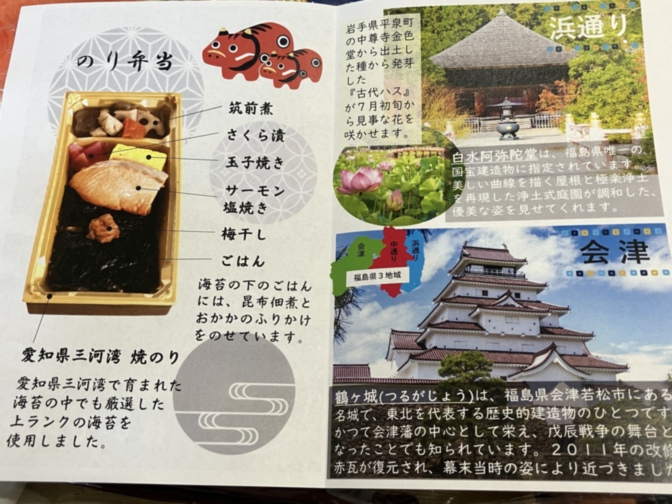 のり弁当
筑前煮
さくら漬
玉子焼き
サーモン
塩焼き
梅干し
ごはん
海苔の下のごはん
には、昆布佃煮と
おかかのふりかけ
をのせています。
愛知県三河湾 焼のり
愛知県三河湾で育まれた
海苔の中でも厳選した
上ランクの海苔を
使用しました。
岩手県平泉町
の中尊寺金色
堂から出土し
た種から発芽
した
『古代ハス』
が7月初旬から
見事な花を
咲かせます。
浜通り
白水阿弥陀堂は、福島県唯一の
国宝建造物に指定されています。
美しい曲線を描く屋根と極楽浄土
を再現した浄土式庭園が調和した、
優美な姿を見せてくれます。
会津
中通り
浜通り
福島県3地域
会津
鶴ヶ城(つるがじょう)は、福島県会津若松市にある
名城で、東北を代表する歴史的建造物のひとつです
かつて会津藩の中心として栄え、戊辰戦争の舞台と
なったことでも知られています。2011年の改修
赤瓦が復元され、幕末当時の姿により近づきまし